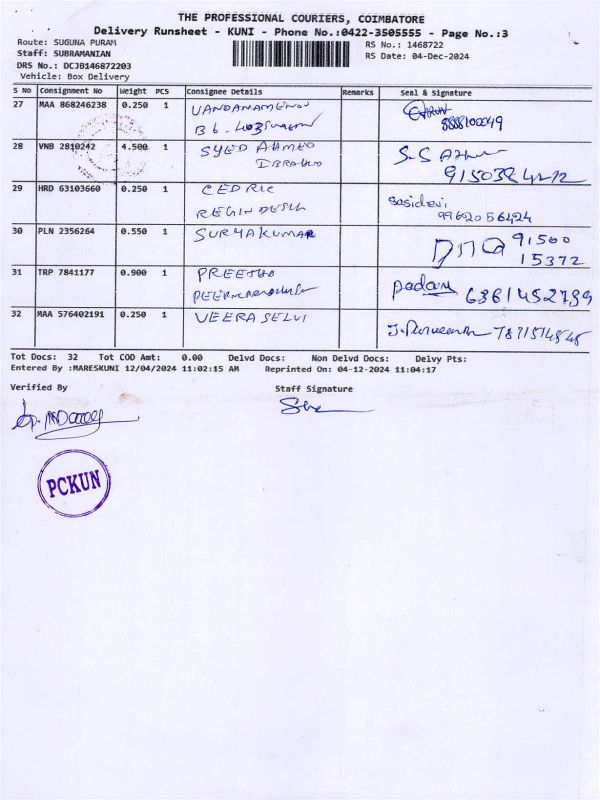 THE PROFESSIONAL COURIERS, COIMBATORE
Delivery Runsheet - KUNI - Phone No.:0422-3505555 - Page No.:3
Route: SUGUNA PURAM RS No.: 1468722
Staff: SUBRAMANIAN RS Date: 04-Dec-2024
DRS No.: DCJB146872203
Vehicle: Box Delivery
S No Consignment No Weight PCS Consignee Details Remarks Seal & Signature
27 MAA 868246238 0.250 1
28 VNB 2810242 4.500 1 SYED AHMED
9150384212
29 HRD 63103660 0.250 1 CEDRIC sasidevi
REGIN 9962056424
30 PLN 2356264 0.550 1 SURYAKUMAR 91500
15372
31 TRP 7841177 0.900 1
32 MAA 576402191 0.250 1 VEERA SELVI
Tot Docs: 32 Tot COD Amt: 0.00 Delvd Docs: Non Delvd Docs: Delvy Pts:
Entered By :MARESKUNI 12/04/2024 11:02:15 AM Reprinted On: 04-12-2024 11:04:17
Verified By Staff Signature
PCKUN